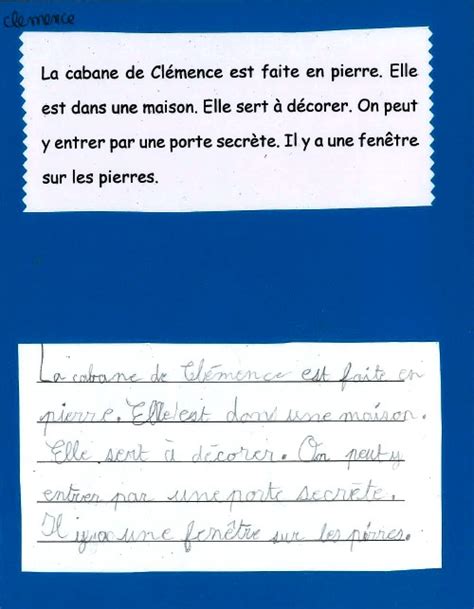 clemence
La cabane de Clémence est faite en pierre. Elle
est dans une maison. Elle sert à décorer. On peut
y entrer par une porte secrète. Il y a une fenêtre
sur les pierres.
La cabane de Clémence est faite en
pierre. Elle est dans une maison.
Elle sert à décorer. On peut y
entrer par une porte secrète.
Il y a une fenêtre sur les pierres.